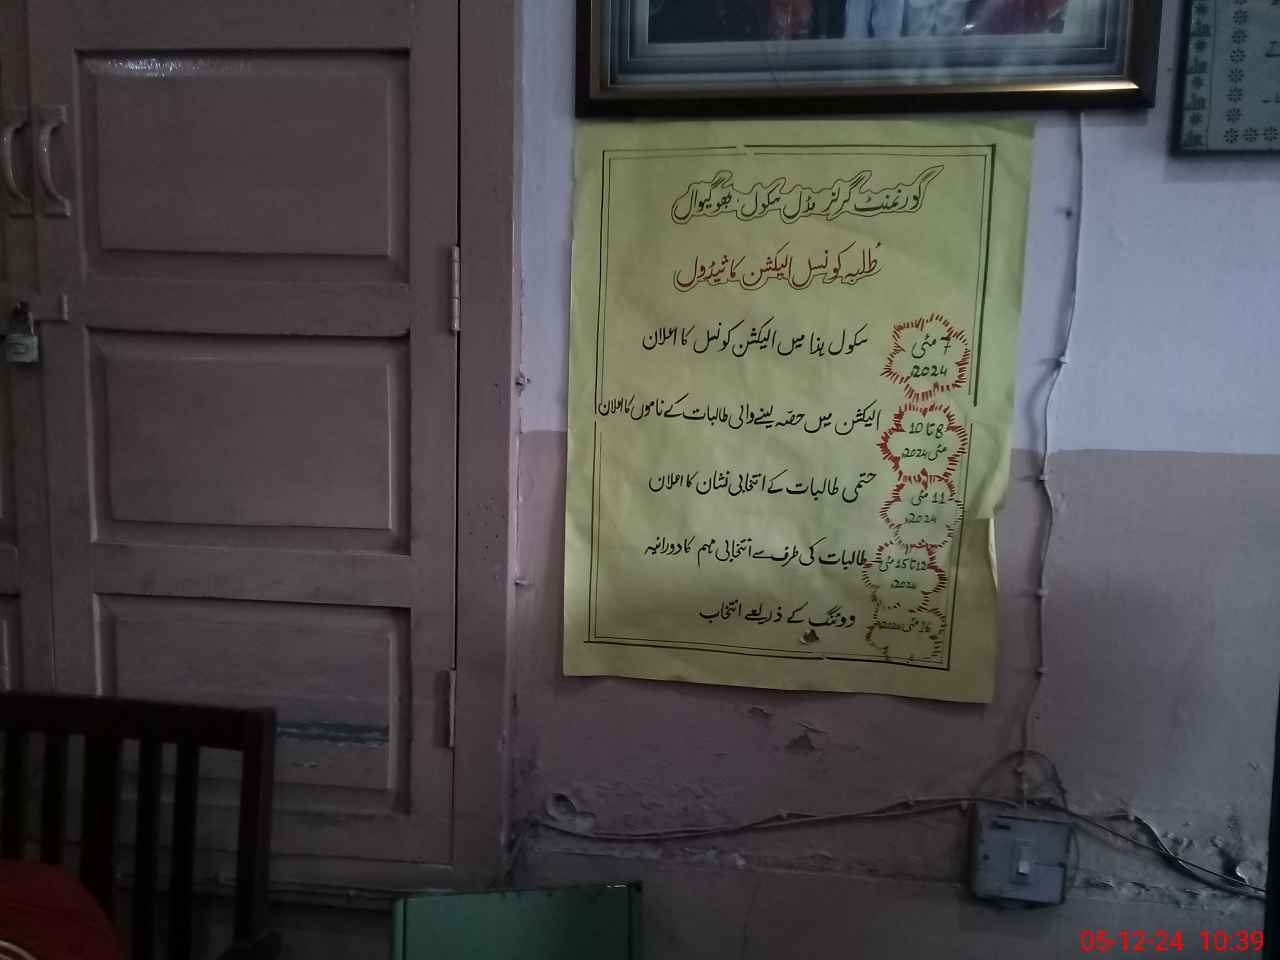 گورنمنٹ گرلز مڈل سکول بھوگیوال
طلبہ کونسل الیکشن کا شیڈول
7 مئی 2024ء
سکول ہذا میں الیکشن کونسل کا اعلان
8 تا 10 مئی 2024ء
الیکشن میں حصّہ لینے والی طالبات کے ناموں کا اعلان
11 مئی 2024ء
حتمی طالبات کے انتخابی نشان کا اعلان
12 تا 15 مئی 2024ء
طالبات کی طرف سے انتخابی مہم کا دورانیہ
16 مئی 2024ء
ووٹنگ کے ذریعے انتخاب
05-12-24 10:39